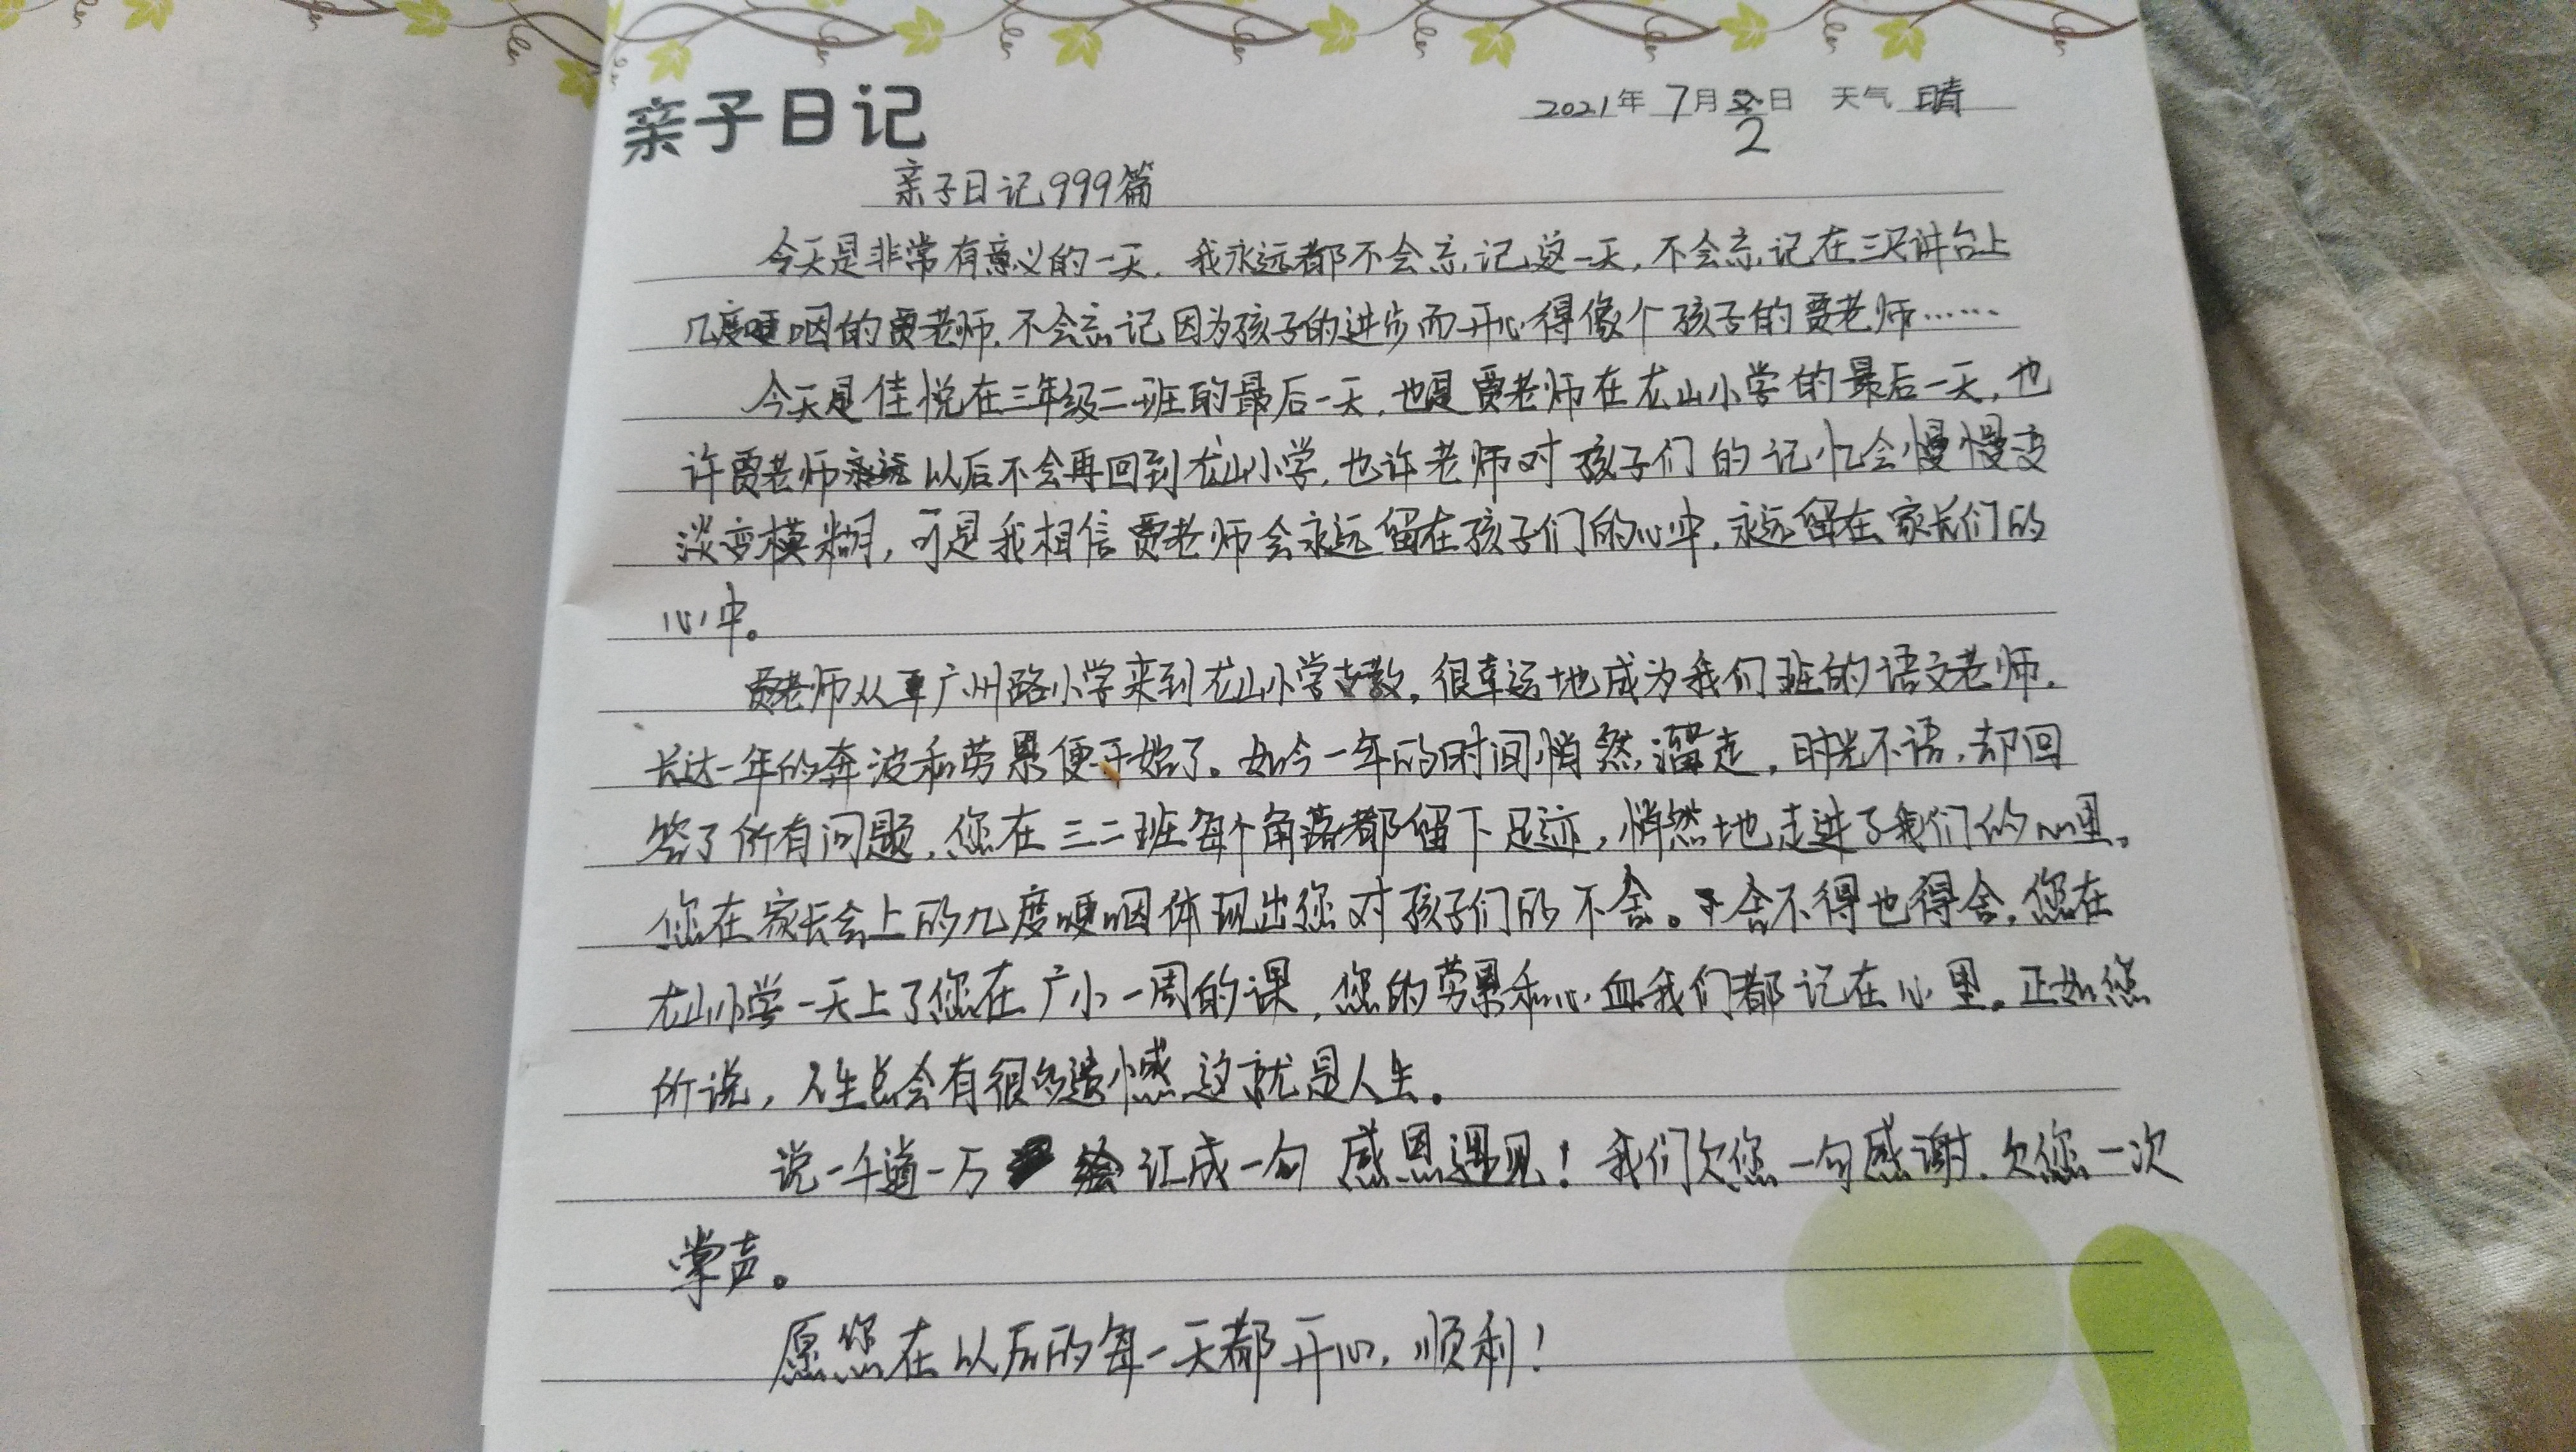 亲子日记
2021年 7月2日 天气 晴
亲子日记999篇
今天是非常有意义的一天，我永远都不会忘记这一天，不会忘记在三尺讲台上
几度哽咽的贾老师，不会忘记因为孩子的进步而开心得像个孩子的贾老师……
今天是佳悦在三年级二班的最后一天，也是贾老师在龙山小学的最后一天，也
许贾老师以后不会再回到龙山小学，也许老师对孩子们的记忆会慢慢变
淡变模糊，可是我相信贾老师会永远留在孩子们的心中，永远留在家长们的
心中。
贾老师从广州路小学来到龙山小学支教，很幸运地成为我们班的语文老师，
长达一年的奔波和劳累便开始了。如今一年的时间悄然溜走，时光不语，却回
答了所有问题，您在三二班每个角落都留下足迹，悄然地走进了我们的心里。
您在家长会上的几度哽咽体现出您对孩子们的不舍。舍不得也得舍，您在
龙山小学一天上了您在广小一周的课，您的劳累和心血我们都记在心里。正如您
所说，人生总会有很多遗憾，这就是人生。
说一千道一万 汇成一句 感恩遇见！我们欠您一句感谢，欠您一次
掌声。
愿您在以后的每一天都开心，顺利！